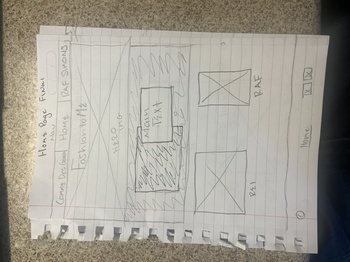 Home Page Final
Nav
Comme Des Garcons Home RAF SIMONS
Fashion to Me
HERO
IMG
Main
Text
REI
RAF
Home